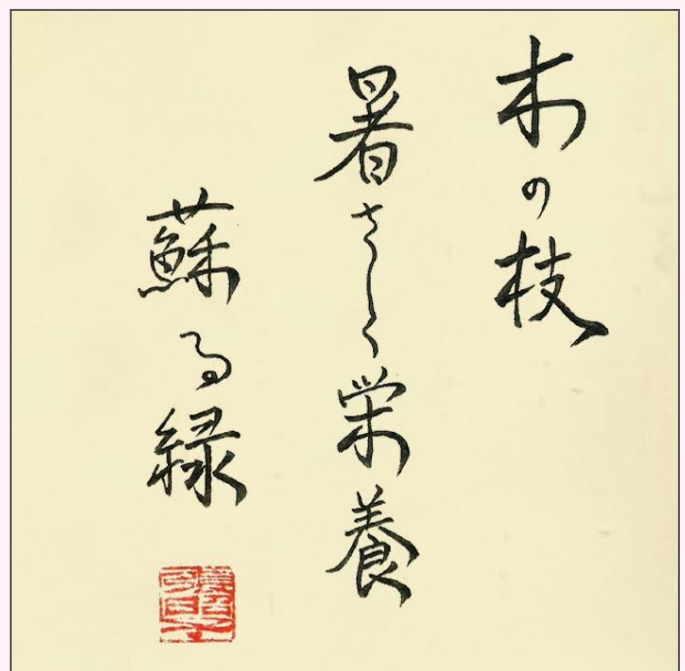 木の枝
暑さしく栄養
蘇る緑